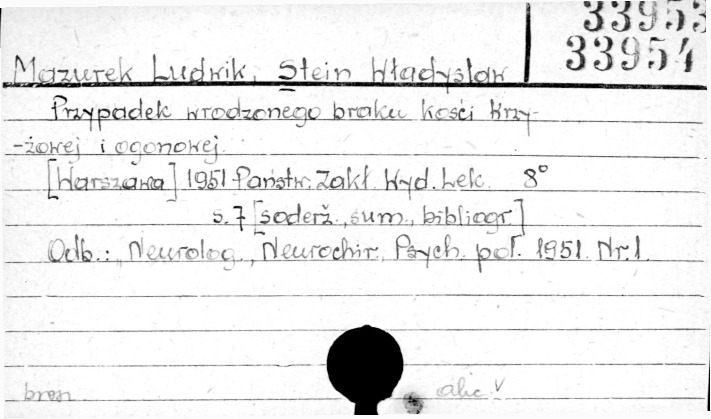 33953
33954
Mazurek Ludwik, Stein Władysław
Przypadek wrodzonego braku kości krzy-
-żowej i ogonowej.
[Warszawa] 1951 Państw. Zakł. Wyd. Lek. 8°
s. 7 [soderž., sum., bibliogr.]
Odb.: Neurolog., Neurochir., Psych. pol. 1951. Nr. 1.
alic V